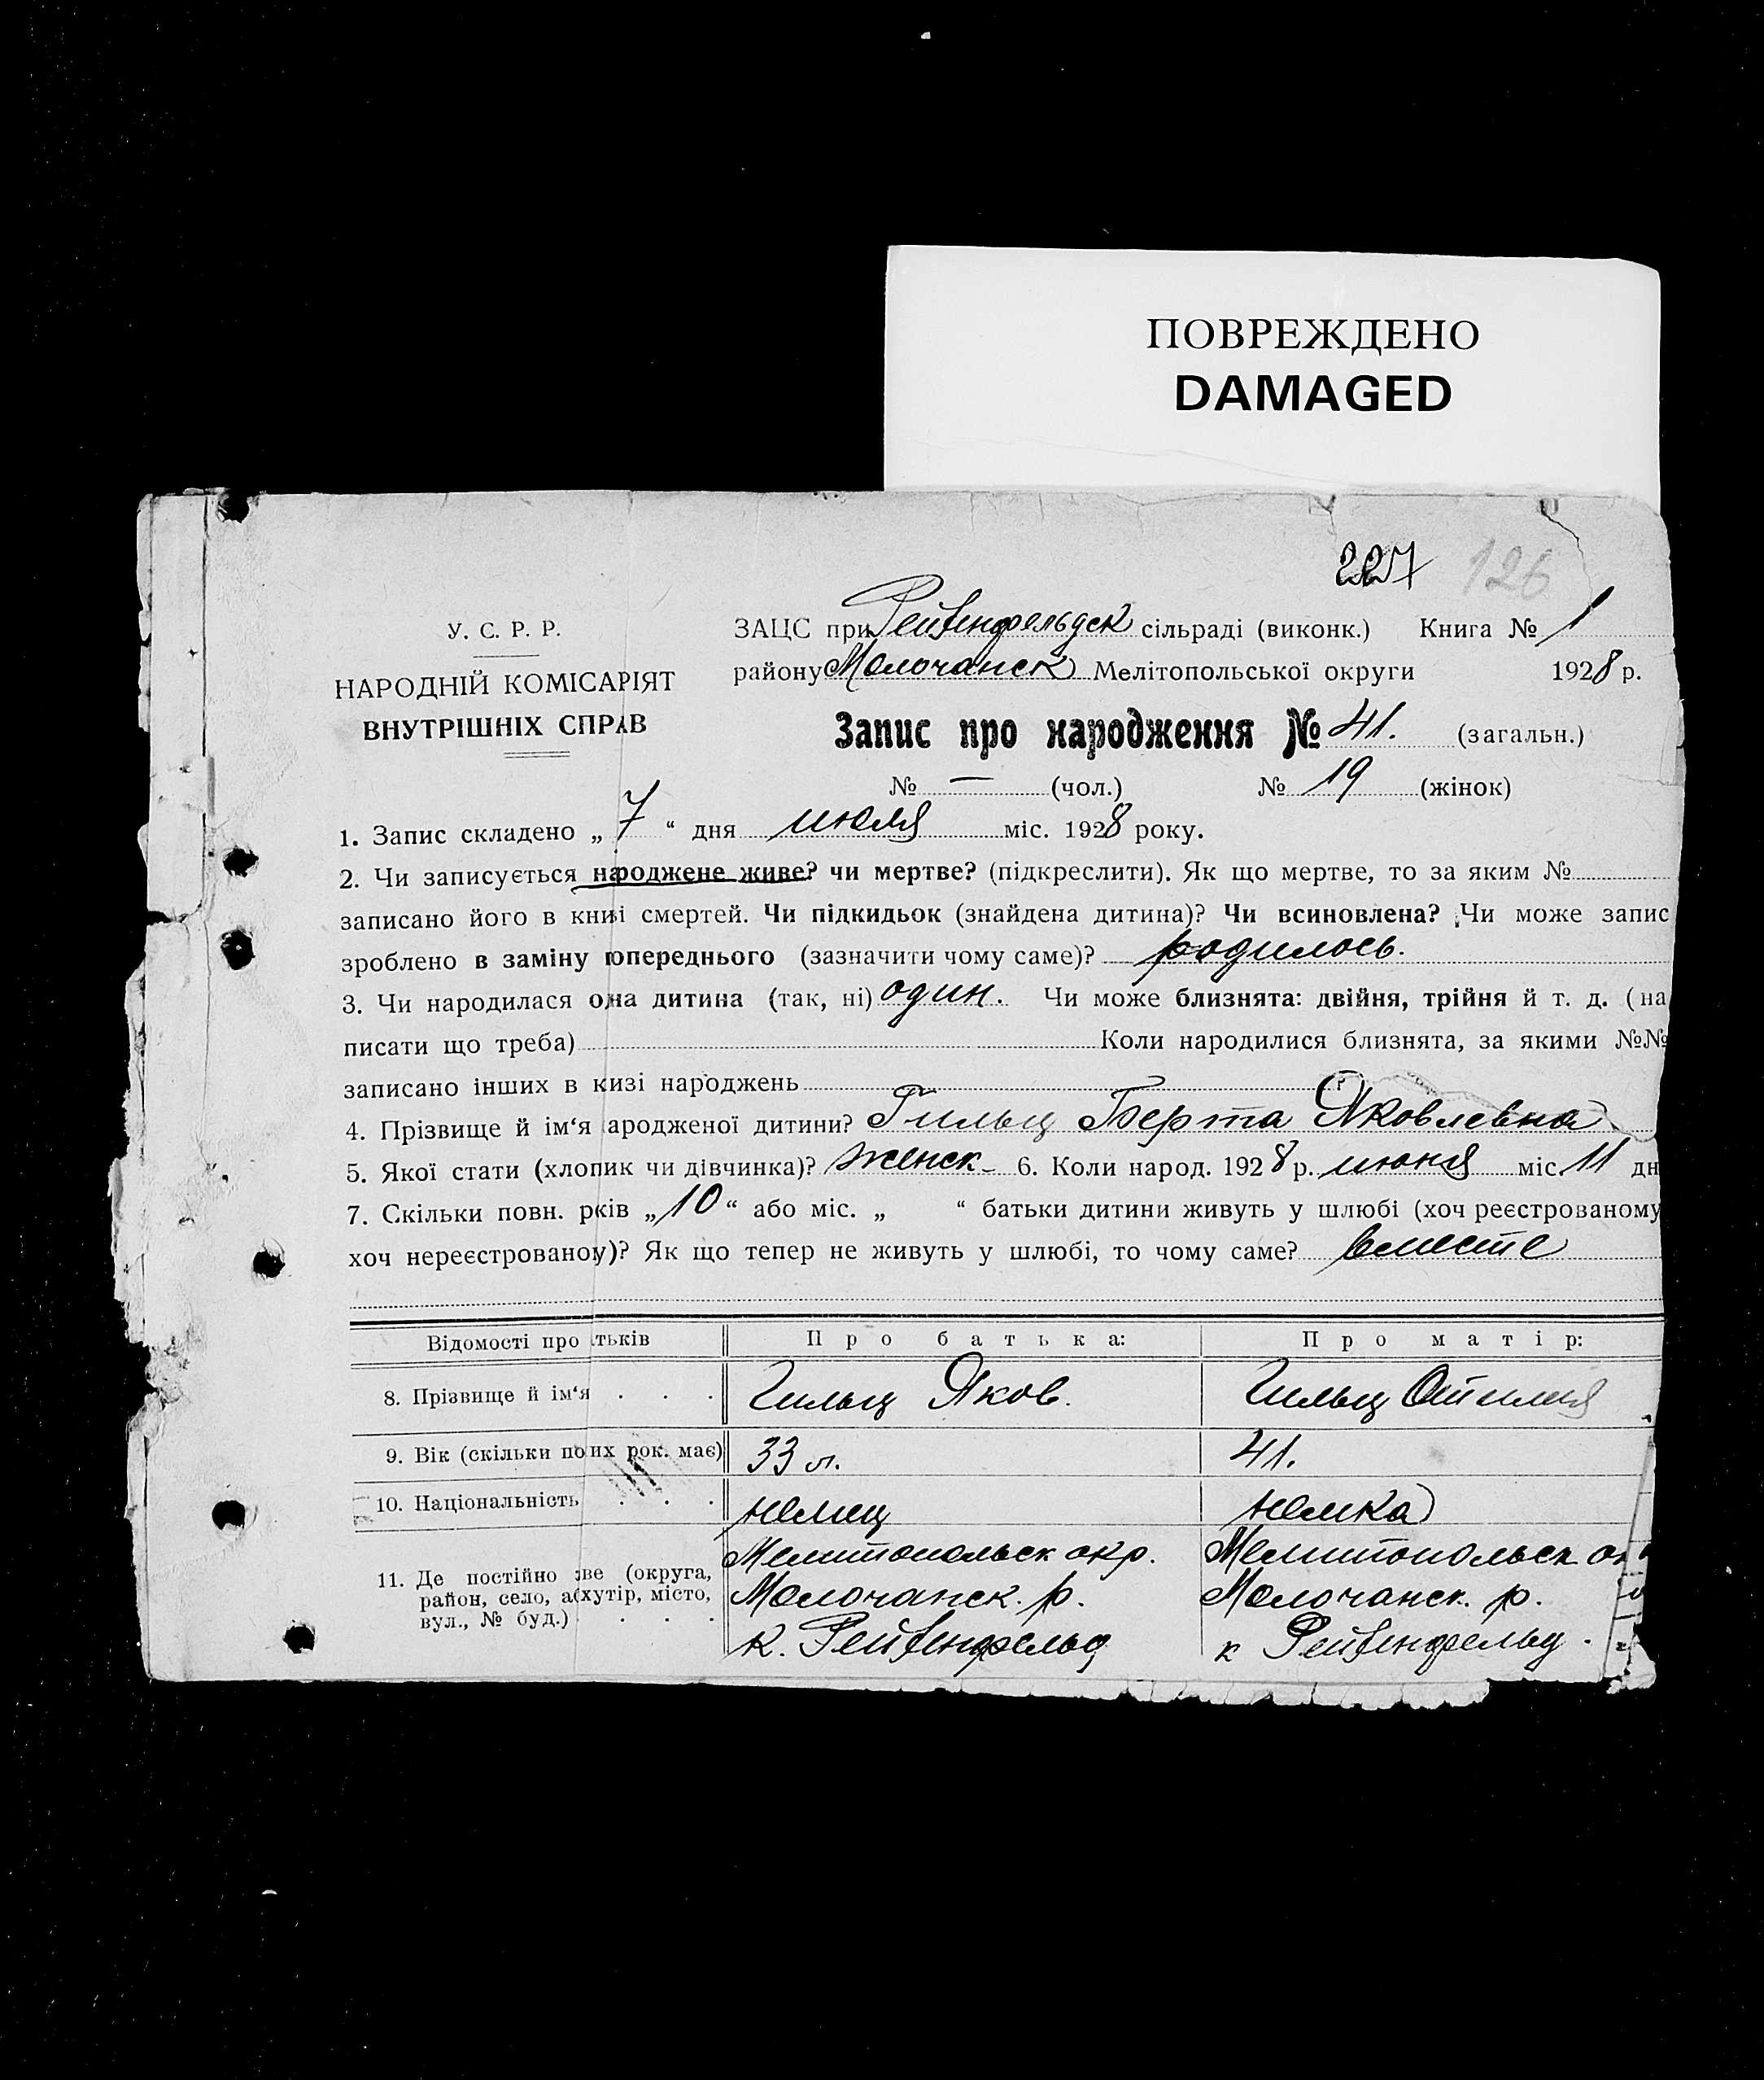 ПОВРЕЖДЕНО
DAMAGED
227 126
У. С. Р. Р.
НАРОДНІЙ КОМІСАРІЯТ
ВНУТРІШНІХ СПРАВ
ЗАЦС при Рейхенфельдск сільраді (виконк.) Книга № 1
району Молочанск Мелітопольської округи 1928 р.
Запис про народження № 41. (загальн.)
№ — (чол.) № 19 (жінок)
1. Запис складено „ 7 “ дня июля міс. 1928 року.
2. Чи записується народжене живе? чи мертве? (підкреслити). Як що мертве, то за яким №
записано його в книзі смертей. Чи підкидьок (знайдена дитина)? Чи всиновлена? Чи може запис
зроблено в заміну попереднього (зазначити чому саме)? родилось.
3. Чи народилася одна дитина (так, ні) один. Чи може близнята: двійня, трійня й т. д. (на
писати що треба) Коли народилися близнята, за якими №№
записано інших в кизі народжень
4. Прізвище й ім‘я ародженої дитини? Гильц Берта Яковлевна
5. Якої стати (хлопик чи дівчинка)? женск- 6. Коли народ. 1928 р. июня міс. 11 дн
7. Скільки повн. рків „ 10 “ або міс. „ “ батьки дитини живуть у шлюбі (хоч реєстрованому
хоч нереєстрованоу)? Як що тепер не живуть у шлюбі, то чому саме? вместе
Відомості про тьків Про батька: Про матір:
8. Прізвище й ім‘я . . . Гильц Яков. Гильц Отилия
9. Вік (скільки поих рок. має) 33 л. 41.
10. Національність . . . немец немка
11. Де постійно ве (округа, район, село, а(хутір, місто, вул., № буд.) . . .
Мелитопольск окр. Мелитопольск
Молочанск. р. Молочанск. р.
к. Рейхенфельд к Рейхенфельд.